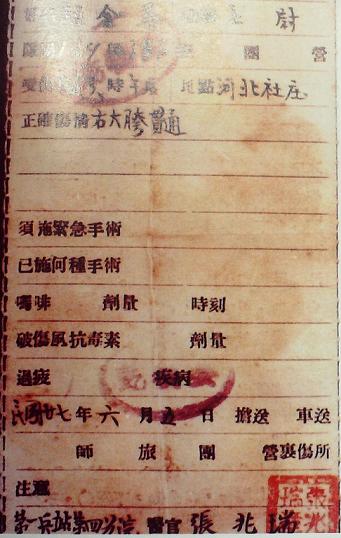 尉
團 營
時 午 地點河北社庄
正確傷情右大胯貫通
須施緊急手術
已施何種手術
嗎啡 劑量 時刻
破傷風抗毒素 劑量
過疲 疾病
民國廿七年六月五日 擔送 車送
師 旅 團 營裹傷所
注意
第一兵站第四分院 醫官 張兆瑞